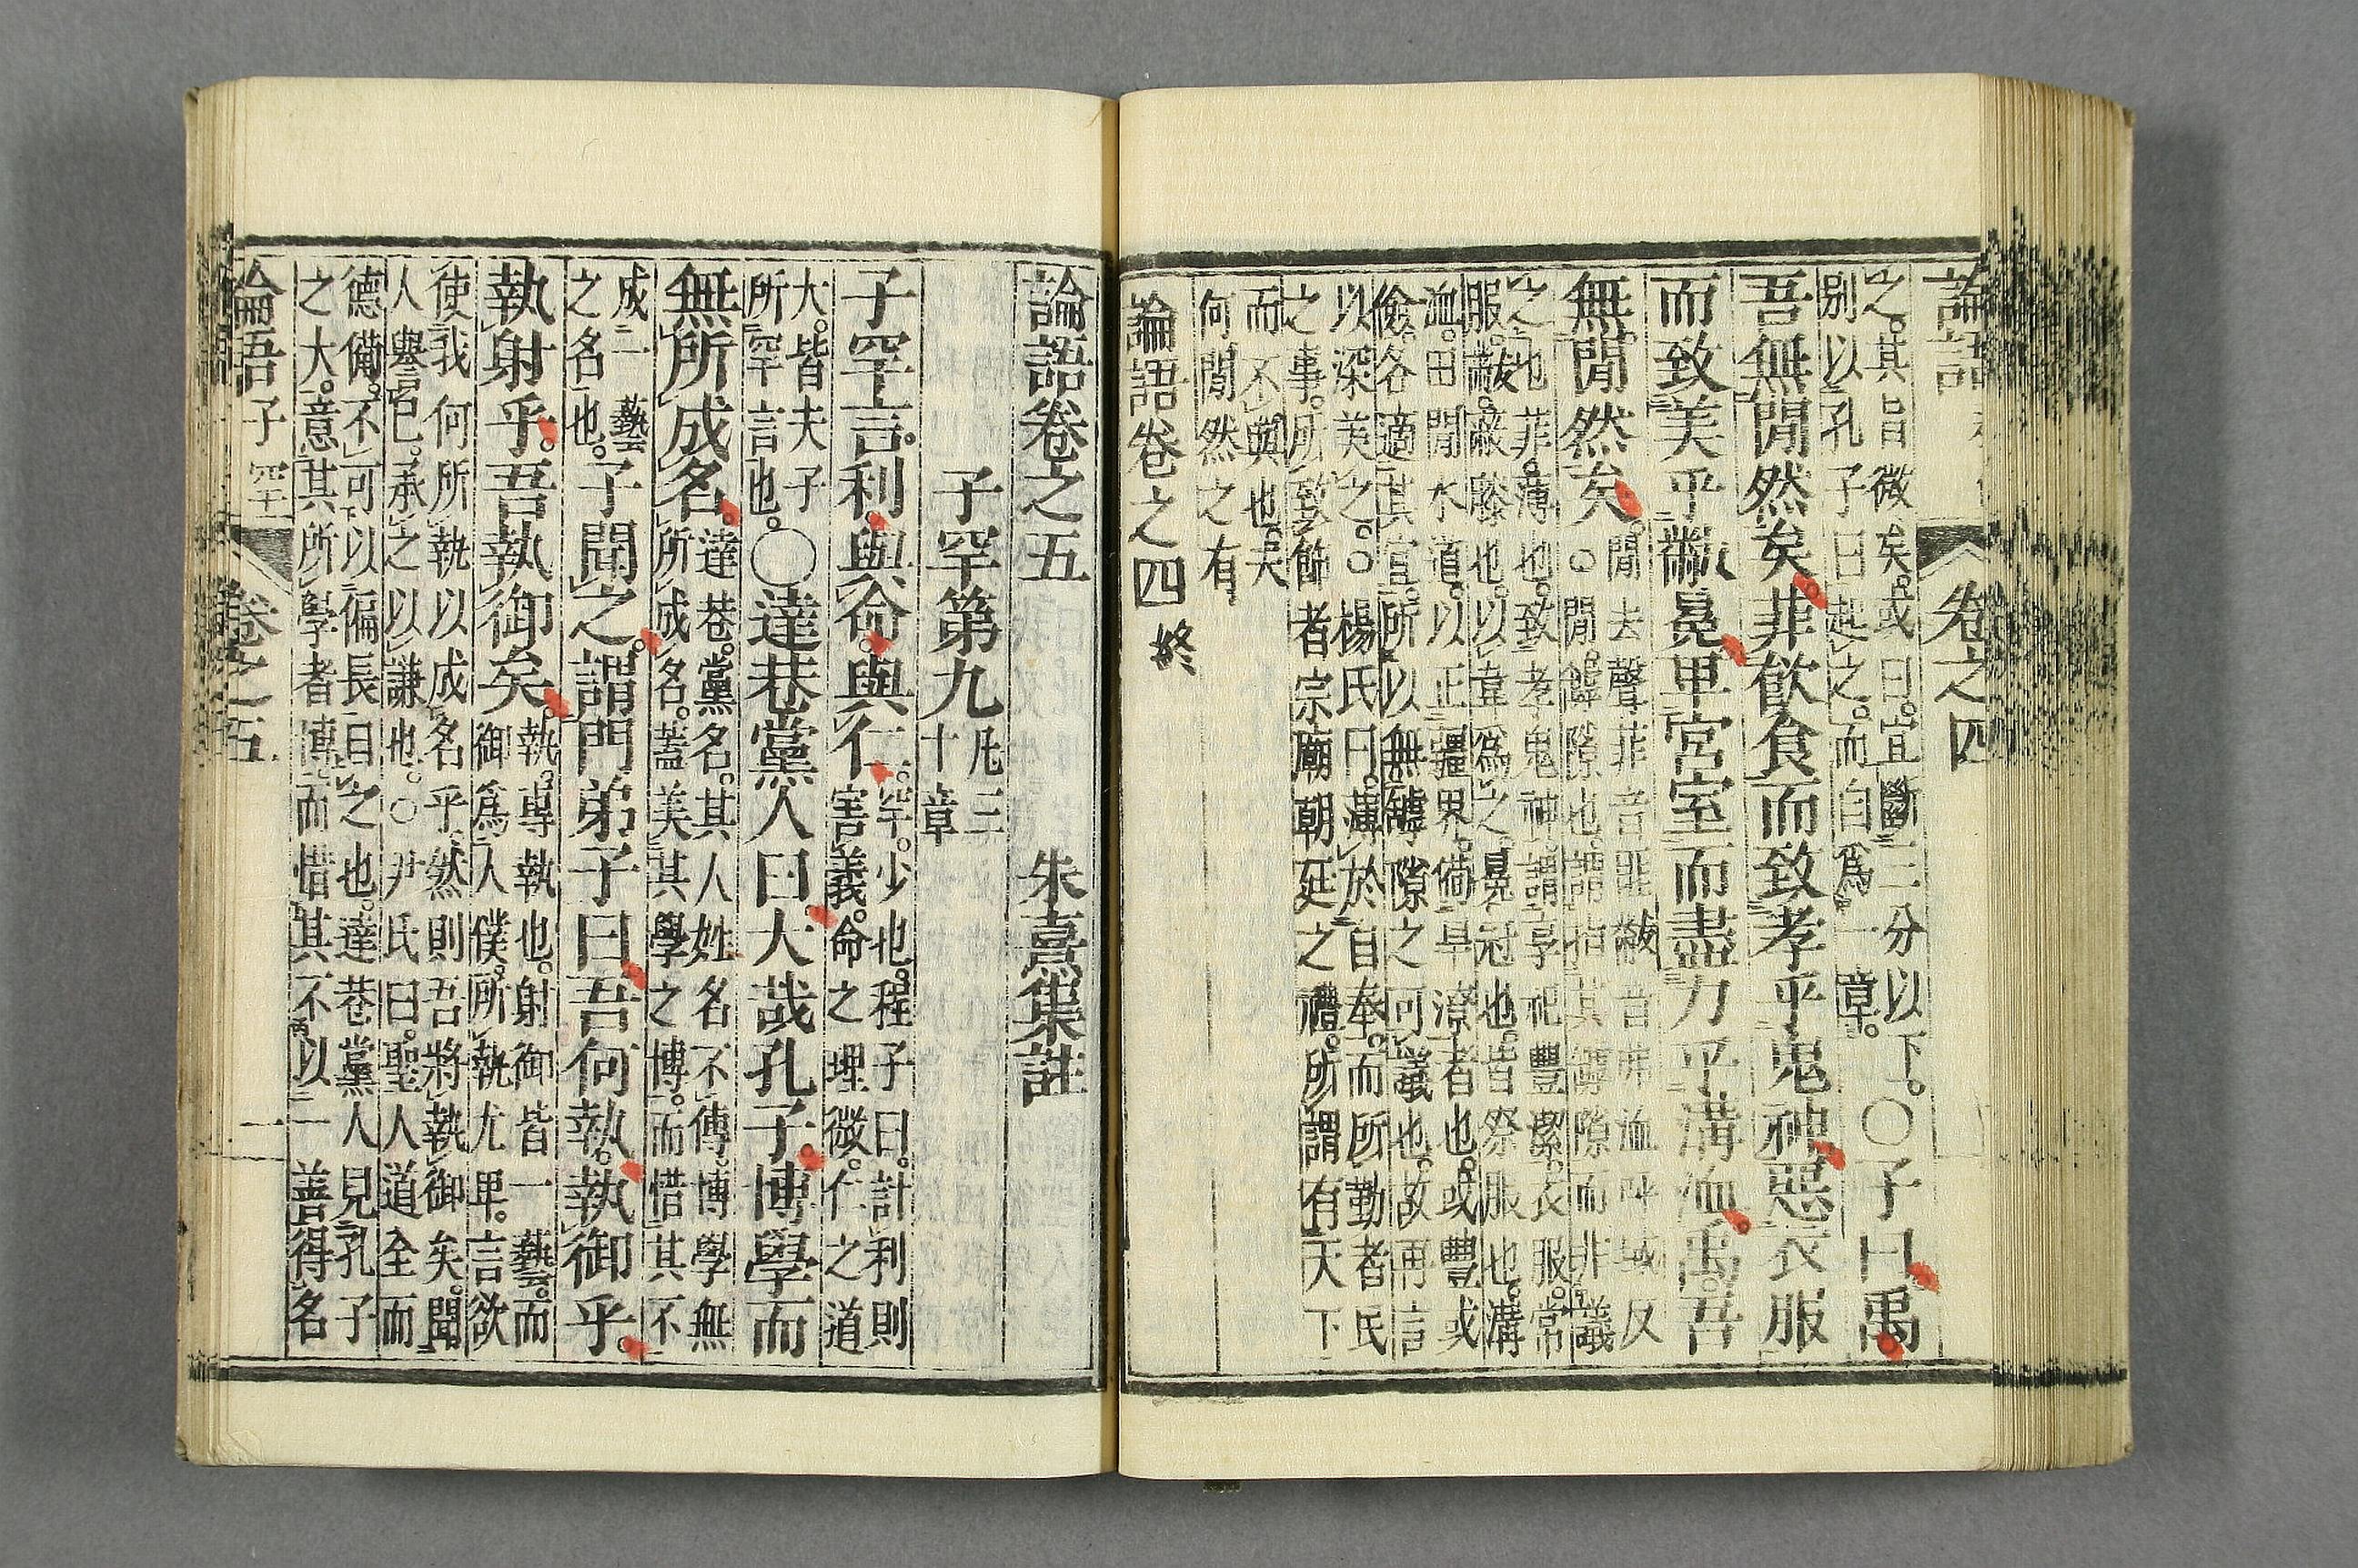 論語 卷之四
之。其旨微矣。或曰。宜斷三分以下。
別以孔子曰起之。而自爲一章。
○子曰禹
吾無閒然矣。菲飲食而致孝乎鬼神惡衣服
而致美乎黻冕卑宮室而盡力乎溝洫禹。吾
無閒然矣。
閒去聲菲音匪黻音弗洫呼域反
○閒。罅隙也。謂指其罅隙而非議
之也菲。薄也。致孝鬼神謂享祀豐潔。衣服。常
服。黻。蔽膝也。以韋爲之。冕冠也。皆祭服也。溝
洫。田閒水道。以正疆界。備旱潦者也。或豐或
儉。各適其宜。所以無罅隙之可議也。故再言
以深美之。○楊氏曰。薄於自奉。而所勤者民
之事。所致飾者宗廟朝延之禮。所謂有天下
而不與也。夫
何閒然之有
論語卷之四終
論語卷之五 朱熹集註
子罕第九
凡三
十章
子罕言。利與命與仁。
罕。少也。程子曰。計利則
害義。命之理微。仁之道
大。皆夫子
所罕言也。
○達巷黨人曰大哉孔子。博學而
無所成名。
達巷。黨名。其人姓名不傳。博學無
所成名。蓋美其學之博。而惜其不
成一藝
之名也。
子聞之。謂門弟子曰吾何執。執御乎。
執射乎。吾執御矣。
執。專執也。射御皆一藝。而
御爲人僕。所執尤卑。言欲
使我何所執以成名乎、然則吾將執御矣。聞
人譽己。承之以謙也。○尹氏曰。聖人道全而
德備。不可以偏長目之也。達巷黨人見孔子
之大。意其所學者博。而惜其不以一善得名
論語 子罕 卷之五 一